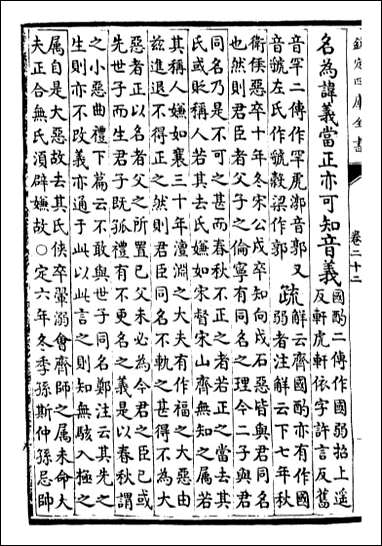 欽定四庫全書
卷二十二
名為諱義當正亦可知音義
國酌二傳作國弱招上遥
反軒虎軒依字許言反舊
音罕二傳作罕虎漷音郭又
音虢左氏作虢穀梁作郭
疏
解云齊國酌亦有作國
弱者注解云下七年秋
衛侯惡卒十年冬宋公戍卒知向戍石惡皆與君同名
也然則君臣者父子之倫寧有同名之理今二子與君
同名乃是不可之甚而春秋不正之者若正之當去其
氏或貶稱人若其去氏嫌如宋督宋山齊無知之屬若
其稱人嫌如襄三十年澶淵之大夫有作福之大惡由
兹進退不得正之然則君臣同名不軌之甚得不為大
惡者正以名者父之所置已父未必為今君之臣已或
先世子而生君子既孤禮有不更名之義是以春秋謂
之小惡曲禮下篇云不敢與世子同名鄭注云其先之
生則亦不改義亦通于此以此言之則知無駭入極之
属自是大惡故去其氏俠卒翬溺會齊師之属未命大
夫正合無氏湏辟嫌故○定六年冬季孫斯仲孫忌帥